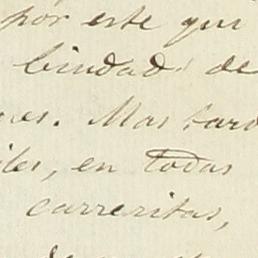 por este qui
bindad de
es. Mas tard
iles, en todas
carreritas,